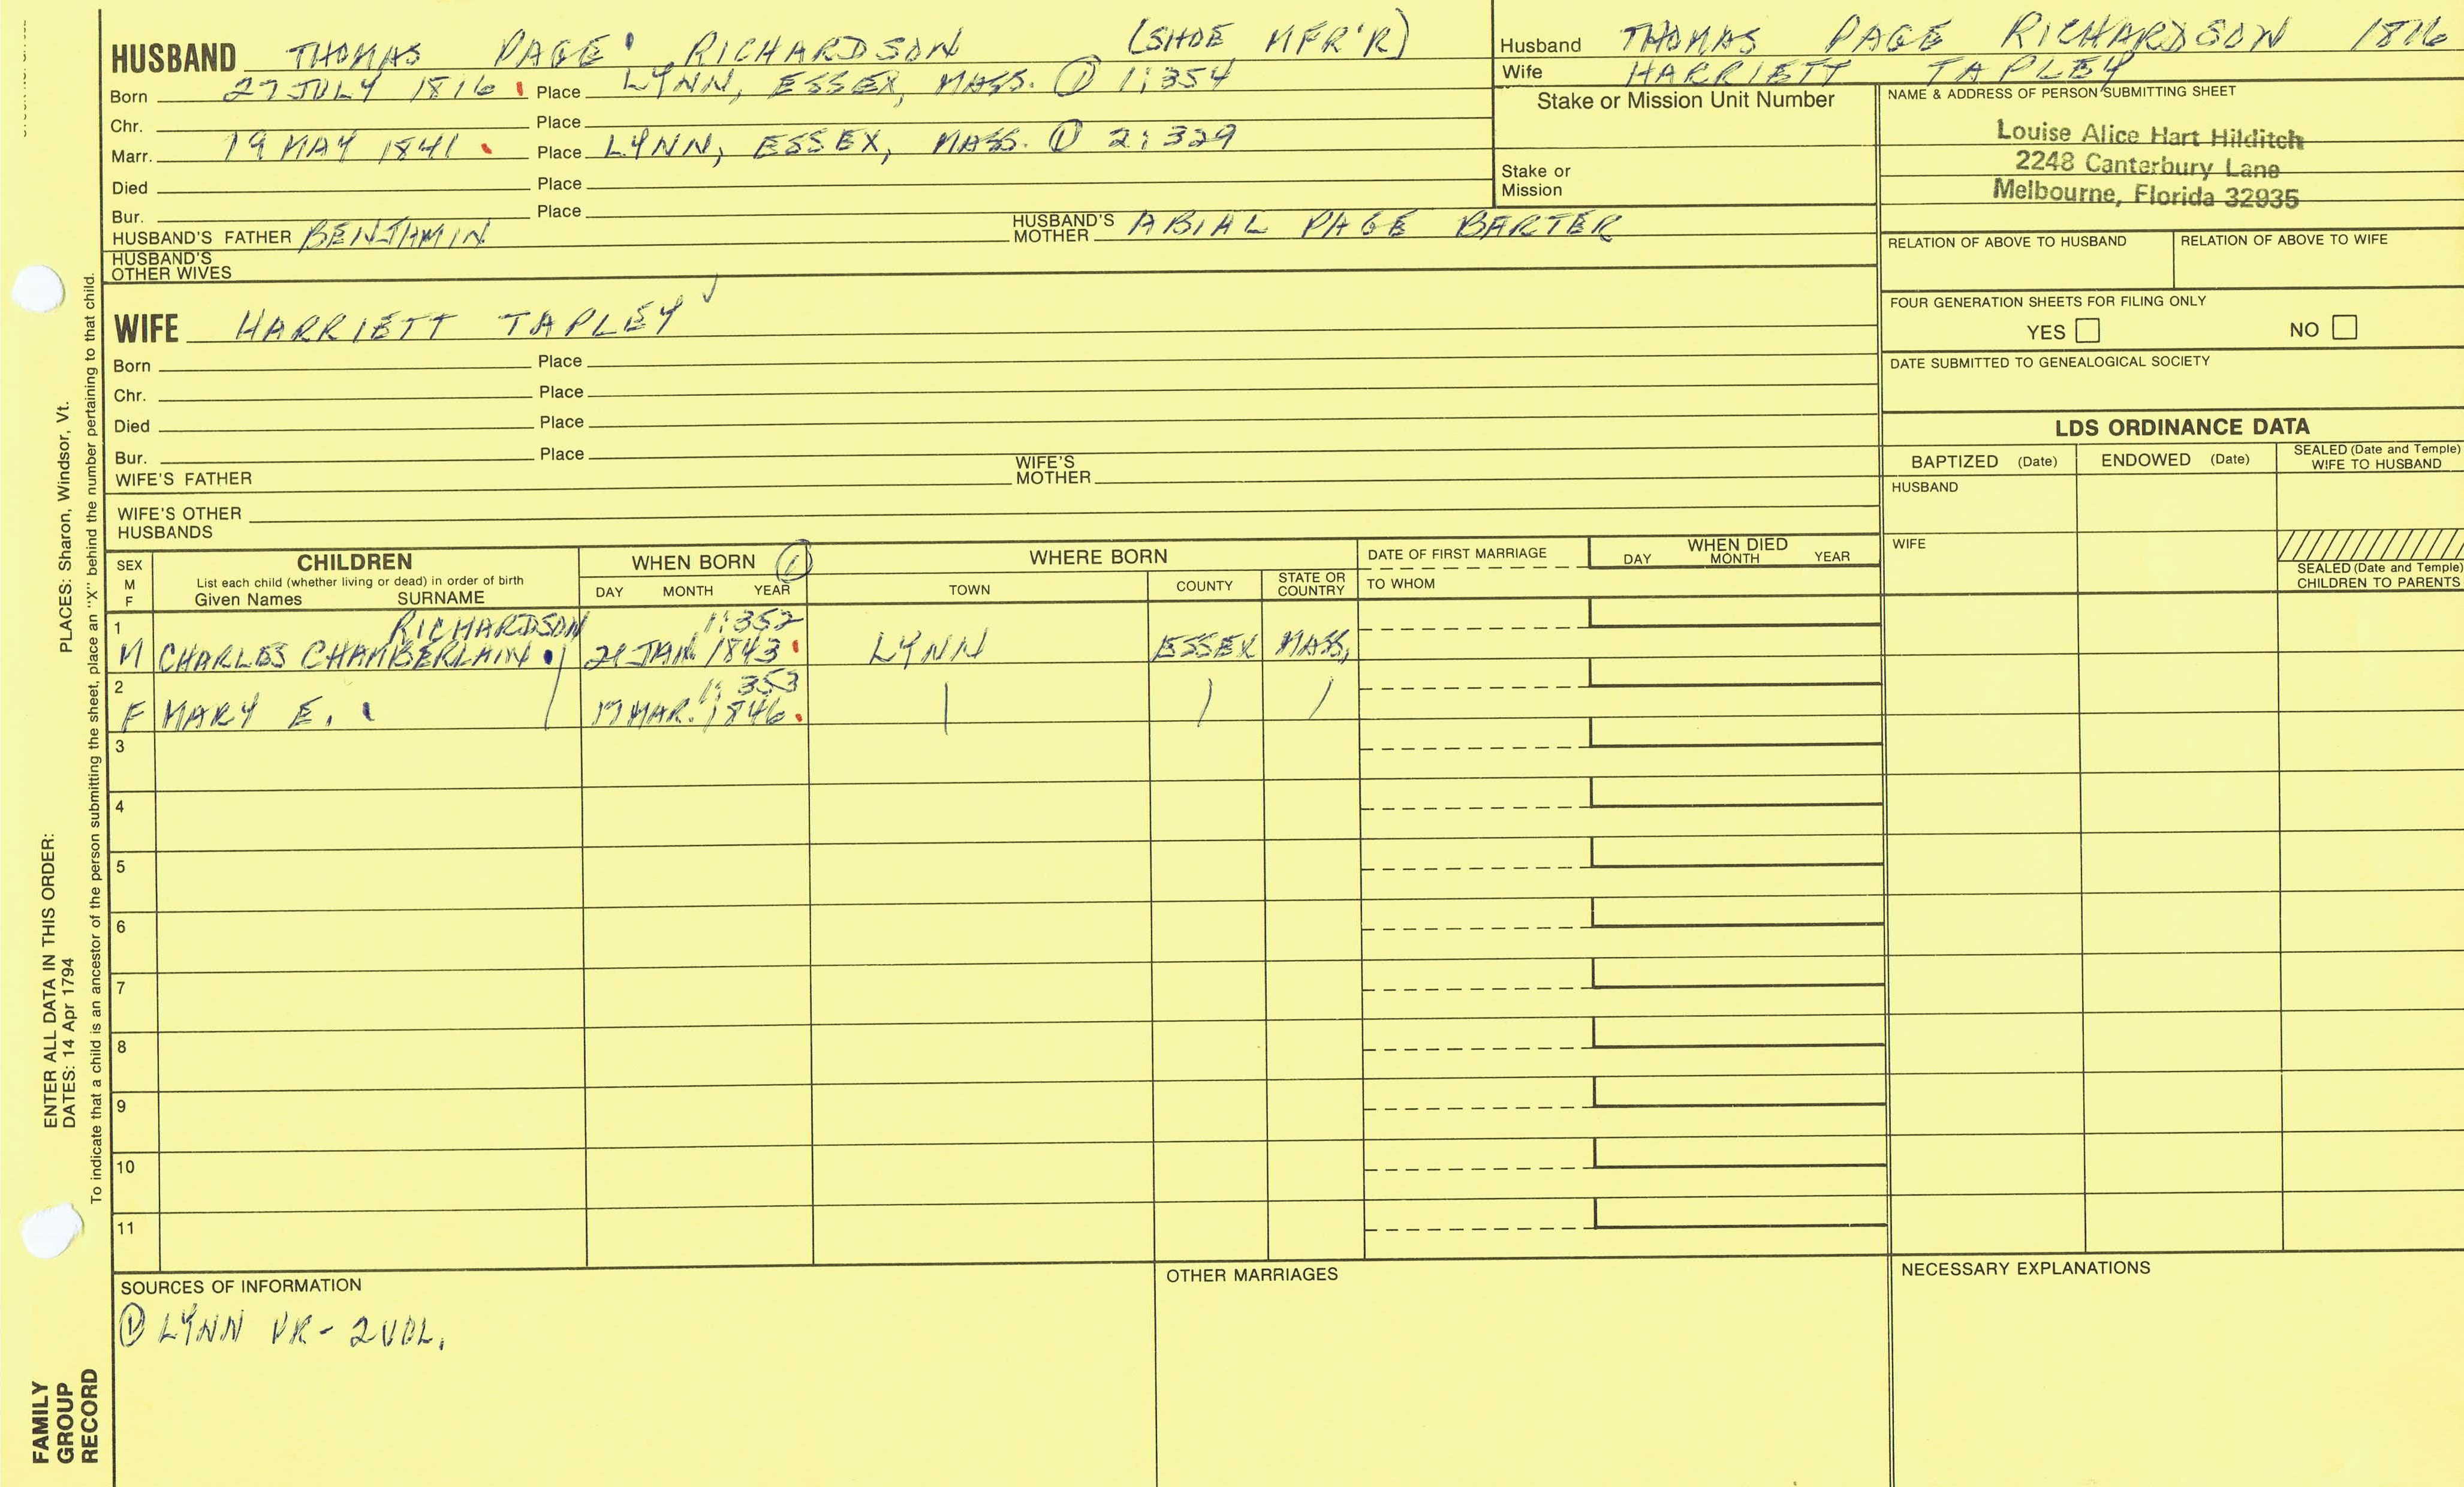 HUSBAND THOMAS PAGE RICHARDSON (SHOE MFR'R)
Born 27 JULY 1816 Place LYNN, ESSEX, MASS. ① 1:354
Chr. Place
Marr. 19 MAY 1841 Place LYNN, ESSEX, MASS. ① 2:329
Died Place
Bur. Place
HUSBAND'S FATHER BENJAMIN HUSBAND'S MOTHER ABIAL PAGE BARTER
HUSBAND'S OTHER WIVES
WIFE HARRIETT TAPLEY ✓
Born Place
Chr. Place
Died Place
Bur. Place
WIFE'S FATHER WIFE'S MOTHER
WIFE'S OTHER HUSBANDS
Husband THOMAS PAGE RICHARDSON 1816
Wife HARRIETT TAPLEY
Stake or Mission Unit Number
Stake or Mission
NAME & ADDRESS OF PERSON SUBMITTING SHEET
Louise Alice Hart Hilditch
2248 Canterbury Lane
Melbourne, Florida 32935
RELATION OF ABOVE TO HUSBAND RELATION OF ABOVE TO WIFE
FOUR GENERATION SHEETS FOR FILING ONLY
YES NO
DATE SUBMITTED TO GENEALOGICAL SOCIETY
LDS ORDINANCE DATA
BAPTIZED (Date) ENDOWED (Date) SEALED (Date and Temple) WIFE TO HUSBAND
HUSBAND
WIFE
SEALED (Date and Temple) CHILDREN TO PARENTS
SEX M F
CHILDREN
List each child (whether living or dead) in order of birth
Given Names SURNAME
WHEN BORN ①
DAY MONTH YEAR
WHERE BORN
TOWN COUNTY STATE OR COUNTRY
DATE OF FIRST MARRIAGE
TO WHOM
WHEN DIED
DAY MONTH YEAR
1 RICHARDSON 1:352
M CHARLES CHAMBERLAIN JAN 1843 LYNN ESSEX MASS,
2 1:353
F MARY E. MAR. 1846
3
4
5
6
7
8
9
10
11
SOURCES OF INFORMATION
① LYNN VR - 2 VOL.
OTHER MARRIAGES
NECESSARY EXPLANATIONS
PLACES: Sharon, Windsor, Vt.
To indicate that a child is an ancestor of the person submitting the sheet, place an "X" behind the number pertaining to that child.
ENTER ALL DATA IN THIS ORDER:
DATES: 14 Apr 1794
FAMILY
GROUP
RECORD